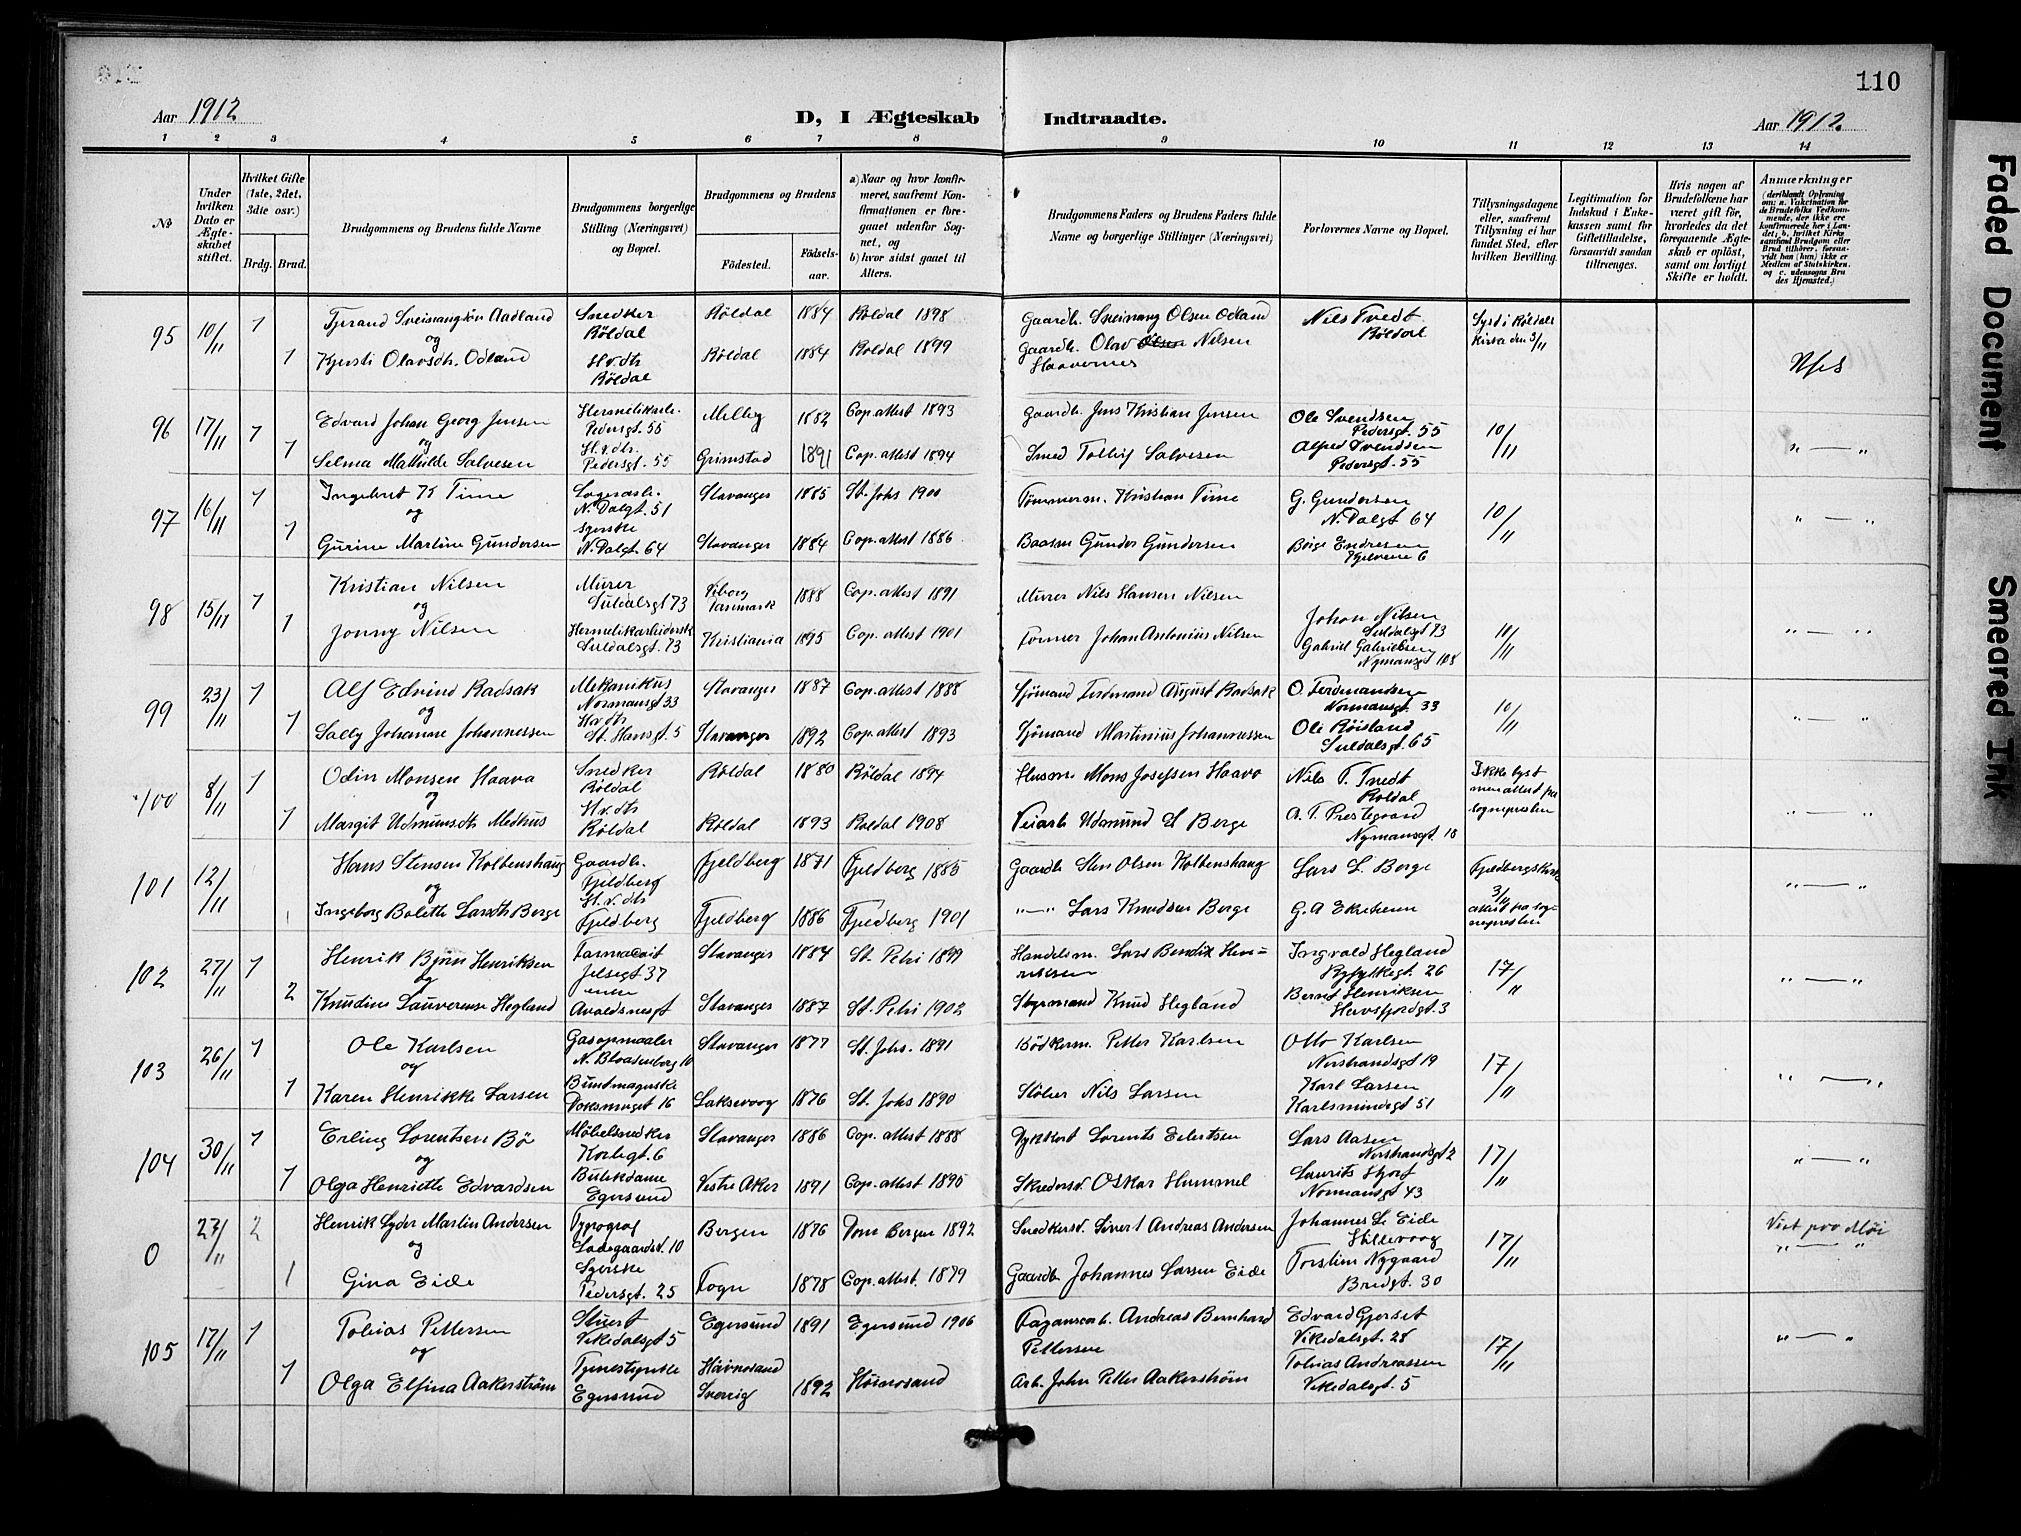 110
Aar 1912
D, I Ægteskab Indtraadte.
Aar 1912.
1 2 3 4 5 6 7 8 9 10 11 12 13 14
No
Under hvilken Dato er Ægteskabet stiftet.
Hvilket Gifte (1ste, 2det, 3die osv.)
Brdg. Brud.
Brudgommens og Brudens fulde Navne
Brudgommens borgerlige Stilling (Næringsvei) og Bopæl.
Brudgommens og Brudens
Fødested.
Fødselsaar.
a) Naar og hvor konfirmeret, saafremt Konfirmationen er foregaaet udenfor Sognet, og
b) hvor sidst gaaet til Alters.
Brudgommens Faders og Brudens Faders fulde Navne og borgerlige Stillinger (Næringsvei)
Forlovernes Navne og Bopæl.
Tillysningsdagene eller, saafremt Tillysning ei har fundet Sted, efter hvilken Bevilling.
Legitimation for Indskud i Enkekassen samt for Giftetilladelse, forsaavidt saadan tiltrænges.
Hvis nogen af Brudefolkene har været gift før, hvorledes da det foregaaende Ægteskab er opløst, samt om lovligt Skifte er holdt.
Anmærkninger
(deriblandt Oplysning om: a. Vakcination for de Brudefolks Vedkommende, der ikke ere konfirmerede her i Landet; b. hvilket Kirkesamfund Brudgom eller Brud tilhører, forsaavidt han (hun) ikke er Medlem af Statskirken, og c. udensogns Brudes Hjemsted.)
95 10/11 1 Tjerand Sveinungsön Aadland Snedker Röldal Röldal 1884 Röldal 1898 Gaardb. Sveinung Olsen Odland Nils Tvedt Röldal Lyst i Röldals Kirke den 3/11
og
1 Kjersti Olavsdtr. Odland H.v.dtr Röldal Röldal 1884 Roldal 1899 Gaardb. Olav Olsen Nilsen Haavernes
96 17/11 1 Edvard Johan Georg Jensen Hermetikarb. Pedersgt. 55 Melby 1882 Cop. attest 1893 Gaardb. Jens Kristian Jensen Ole Svendsen Pedersgt. 55 10/11 " — "
og
1 Selma Mathilde Salvesen H.v.dtr. Pedersgt. 55 Grimstad 1891 Cop. attest 1894 Smed Tollef Salvesen Alfred Svendsen Pedersgt. 55
97 16/11 1 Ingebret K Time Lagerarb. N. Dalgt. 51 Stavanger 1885 St. Johs 1900 Tömmerm. Kristian Time G. Gundersen N. Dalgt 64 10/11 " — "
og
1 Gurine Martine Gundersen Syerske N. Dalgt. 64 Stavanger 1884 Cop. attest 1886 Baasm Gunder Gundersen Börge Endresen Kjelvene 6
98 15/11 1 Kristian Nilsen Murer Suldalsgt 73 Viborg Danmark 1888 Cop. attest 1891 Murer Nils Hansen Nilsen Johan Nilsen Suldalsgt 73 10/11 " — "
og
1 Jonny Nilsen Hermetikarbeidersk Suldalsgt. 73 Kristiania 1895 Cop. attest 1901 Former Johan Antonius Nilsen Gabriel Gabrielsen Nymansgt 108
99 23/11 1 Alf Edvind Radsak Mekanikus Normansgt 33 Stavanger 1887 Cop. attest 1888 Sjömand Ferdinand August Radsak O. Ferdinandsen Normansgt. 33 10/11 " — "
og
1 Sally Johanne Johannessen H.v.dtr St. Hansgt. 5 Stavanger 1892 Cop. attest 1893 Sjömand Martinius Johannessen Ole Röisland Suldalsgt. 65
100 8/11 1 Odin Monsen Haava Snedker Röldal Röldal 1880 Röldal 1894 Husm. Mons Josefsen Haavo Nils T. Tvedt Röldal Ikke lyst men attest fra sognepresten " — "
og
1 Margit Udmundsdtr Medhus H.v.dtr Röldal Röldal 1893 Roldal 1908 Veiarb Udmund E Berge A. T. Prestegaard Nymansgt. 18
101 12/11 Hans Stensen Kolbenshaug Gaardb. Fjeldberg Fjeldberg 1871 Fjeldberg 1885 Gaardb Sten Olsen Kolbenshaug Lars L. Berge Fjeldbergs Kirke 3/11 attest fra sognepresten " — "
og
1 Ingeborg Bolette Larsdtr Berge H.v.dtr Fjeldberg Fjeldberg 1886 Fjeldberg 1901 " — " Lars Knudsen Berge G. A Ekrheim
102 27/11 1 Henrik Björn Henriksen Farmaceit Jelsegt 37 Stavanger 1884 St. Petri 1899 Handelsm. Lars Bendix Henriksen Ingvald Hegland Ryfylkegt. 26 17/11 " — "
og
2 Knudine Lauverense Hegland enke Avaldsnesgt Stavanger 1887 St. Petri 1902 Styrmand Knud Hegland Bernt Henriksen Hervsfjordgt. 3
103 26/11 1 Ole Karlsen Gasopmaaler N. Blaasenborg 10 Stavanger 1877 St. Johs. 1891 Bödkerm. Petter Karlsen Otto Karlsen Norstrandsgt 19 17/11 " — "
og
1 Karen Henrikke Larsen Buntmagerske Voksmugt 16 Laksevaag 1876 St. Johs 1890 Stöber Nils Larsen Karl Larsen Karlsmindegt 51
104 30/11 1 Erling Lorentsen Bö Möbelsnedker Korbgt. 6 Stavanger 1886 Cop. attest 1888 Dykkert Lorents Eilertsen Lars Aasen Norstrandsgt 2 17/11 " — "
og
1 Olga Henriette Edvardsen Butikdame Egersund Vestre Aker 1891 Cop. attest 1895 Skredersv. Oskar Hummel Laurits Hjort Normansgt. 43
0 27/11 2 Henrik Lyder Martin Andersen Typograf Ladegaardsv. 10 Bergen 1876 Dom Bergen 1892 Snedkersv. Sivert Andreas Andersen Johannes L. Eide Hillevaag 17/11
og
1 Gina Eide Syerske Pedersgt. 25 Fogn 1878 Cop. attest. 1879 Gaardb Johannes Larsen Eide Torstein Nygaard Bredgt. 30
105 17/11 1 Tobias Pettersen Stuert Vikedalsgt 5 Egersund 1891 Egersund 1906 Fazansearb. Andreas Bernhard Pettersen Edvard Gjerset Vikedalsgt. 28 17/11 " — "
og
1 Olga Elfina Aakerström Tjenestepike Egersund Härnosand Sverrig 1892 Hörnosand Arb. John Petter Aakerström Tobias Andreassen Vikedalsgt. 5
Faded Document
Smeared Ink